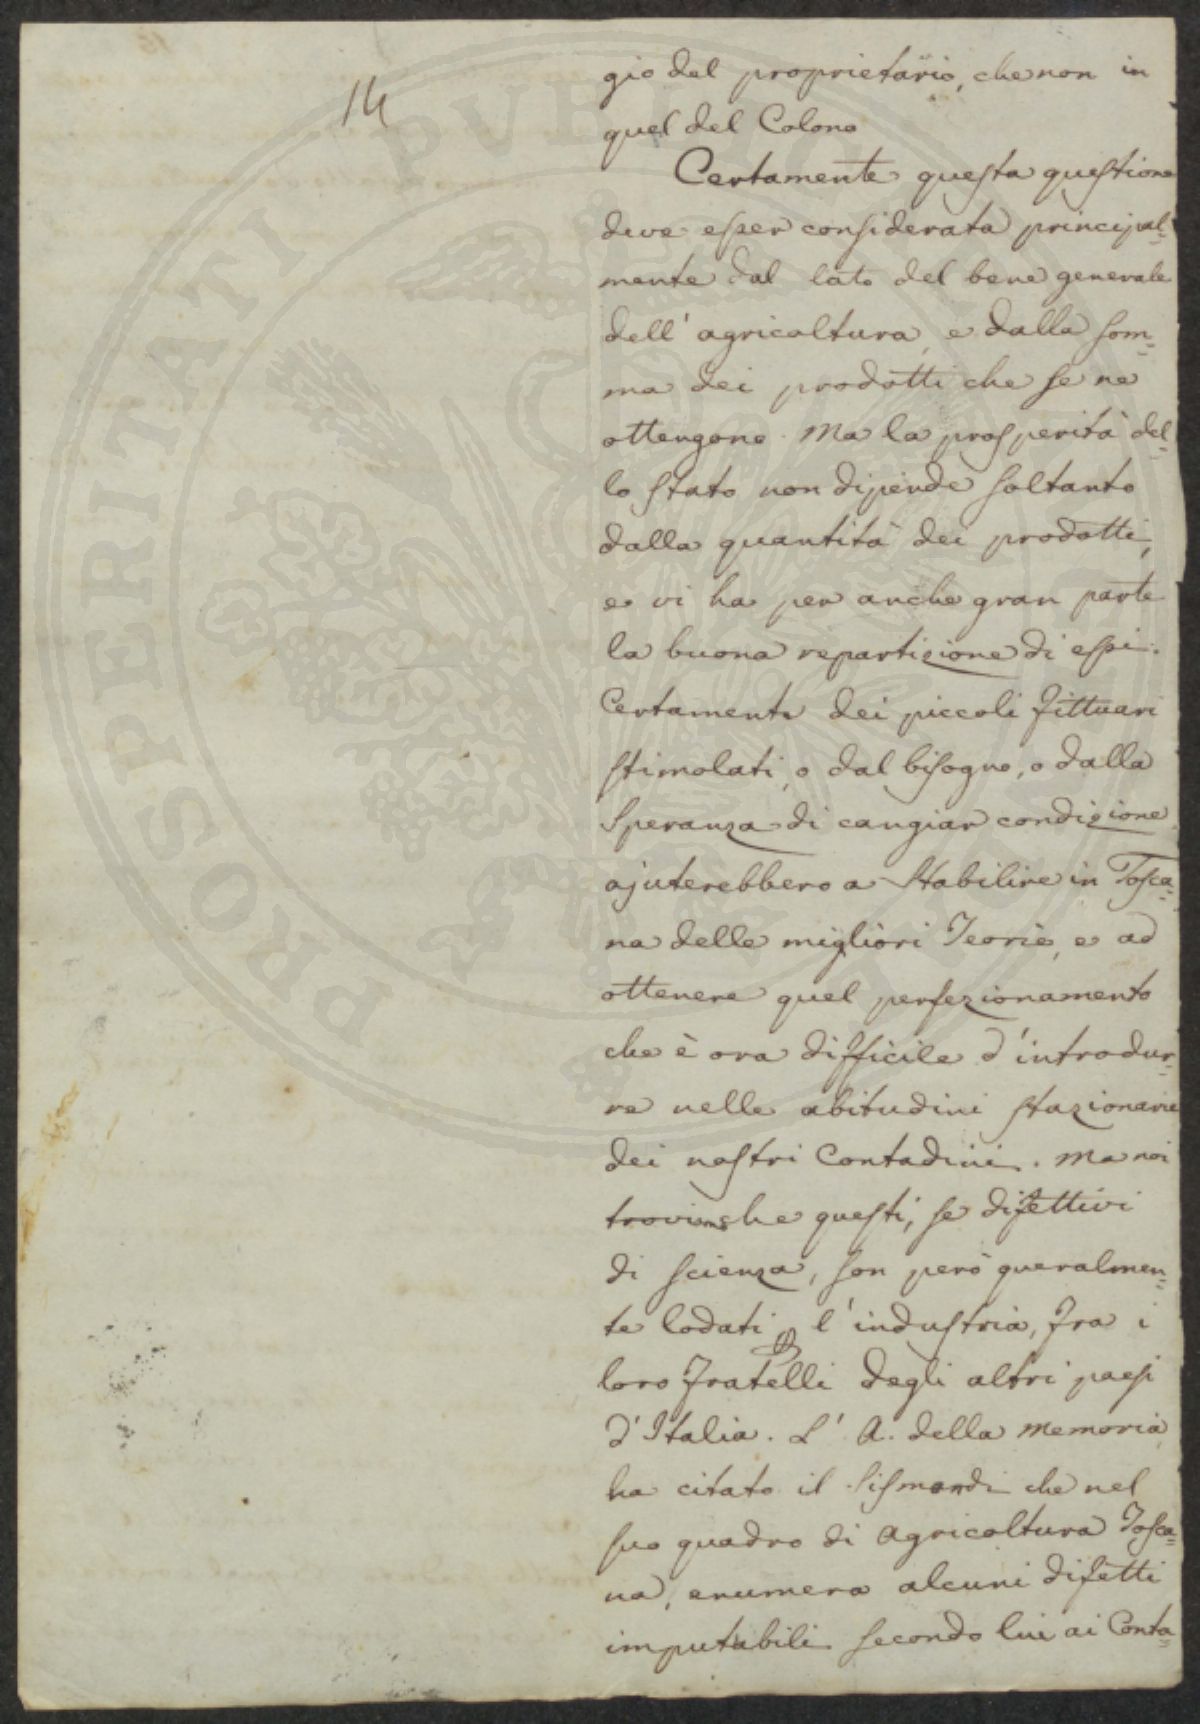 14
gio del proprietario, che non in
quel del Colono
Certamente questa questione
deve esser considerata principal=
mente dal lato del bene generale
dell' agricoltura, e dalla som=
ma dei prodotti che se ne
ottengono. Ma la prosperità del=
lo stato non dipende soltanto
dalla quantità dei prodotti,
e vi ha per anche gran parte
la buona repartizione di essi.
Certamente dei piccoli fittuari
stimolati, o dal bisogno, o dalla
speranza di cangiar condizione
ajuterebbero a stabilire in Tosca=
na delle migliori Teorie, e ad
ottenere quel perfezionamento
che è ora difficile d'introdur=
re nelle abitudini stazionarie
dei nostri Contadini. Ma noi
che questi, se difettivi
di scienza, son però generalmen=
te lodati p l'industria, fra i
loro fratelli degli altri paesi
d'Italia. L' A. della memoria,
ha citato il Sismondi che nel
suo quadro di agricoltura Tosca=
na, enumera alcuni difetti
imputabili secondo lui ai Conta=
PROSPERITATI PVBLIC